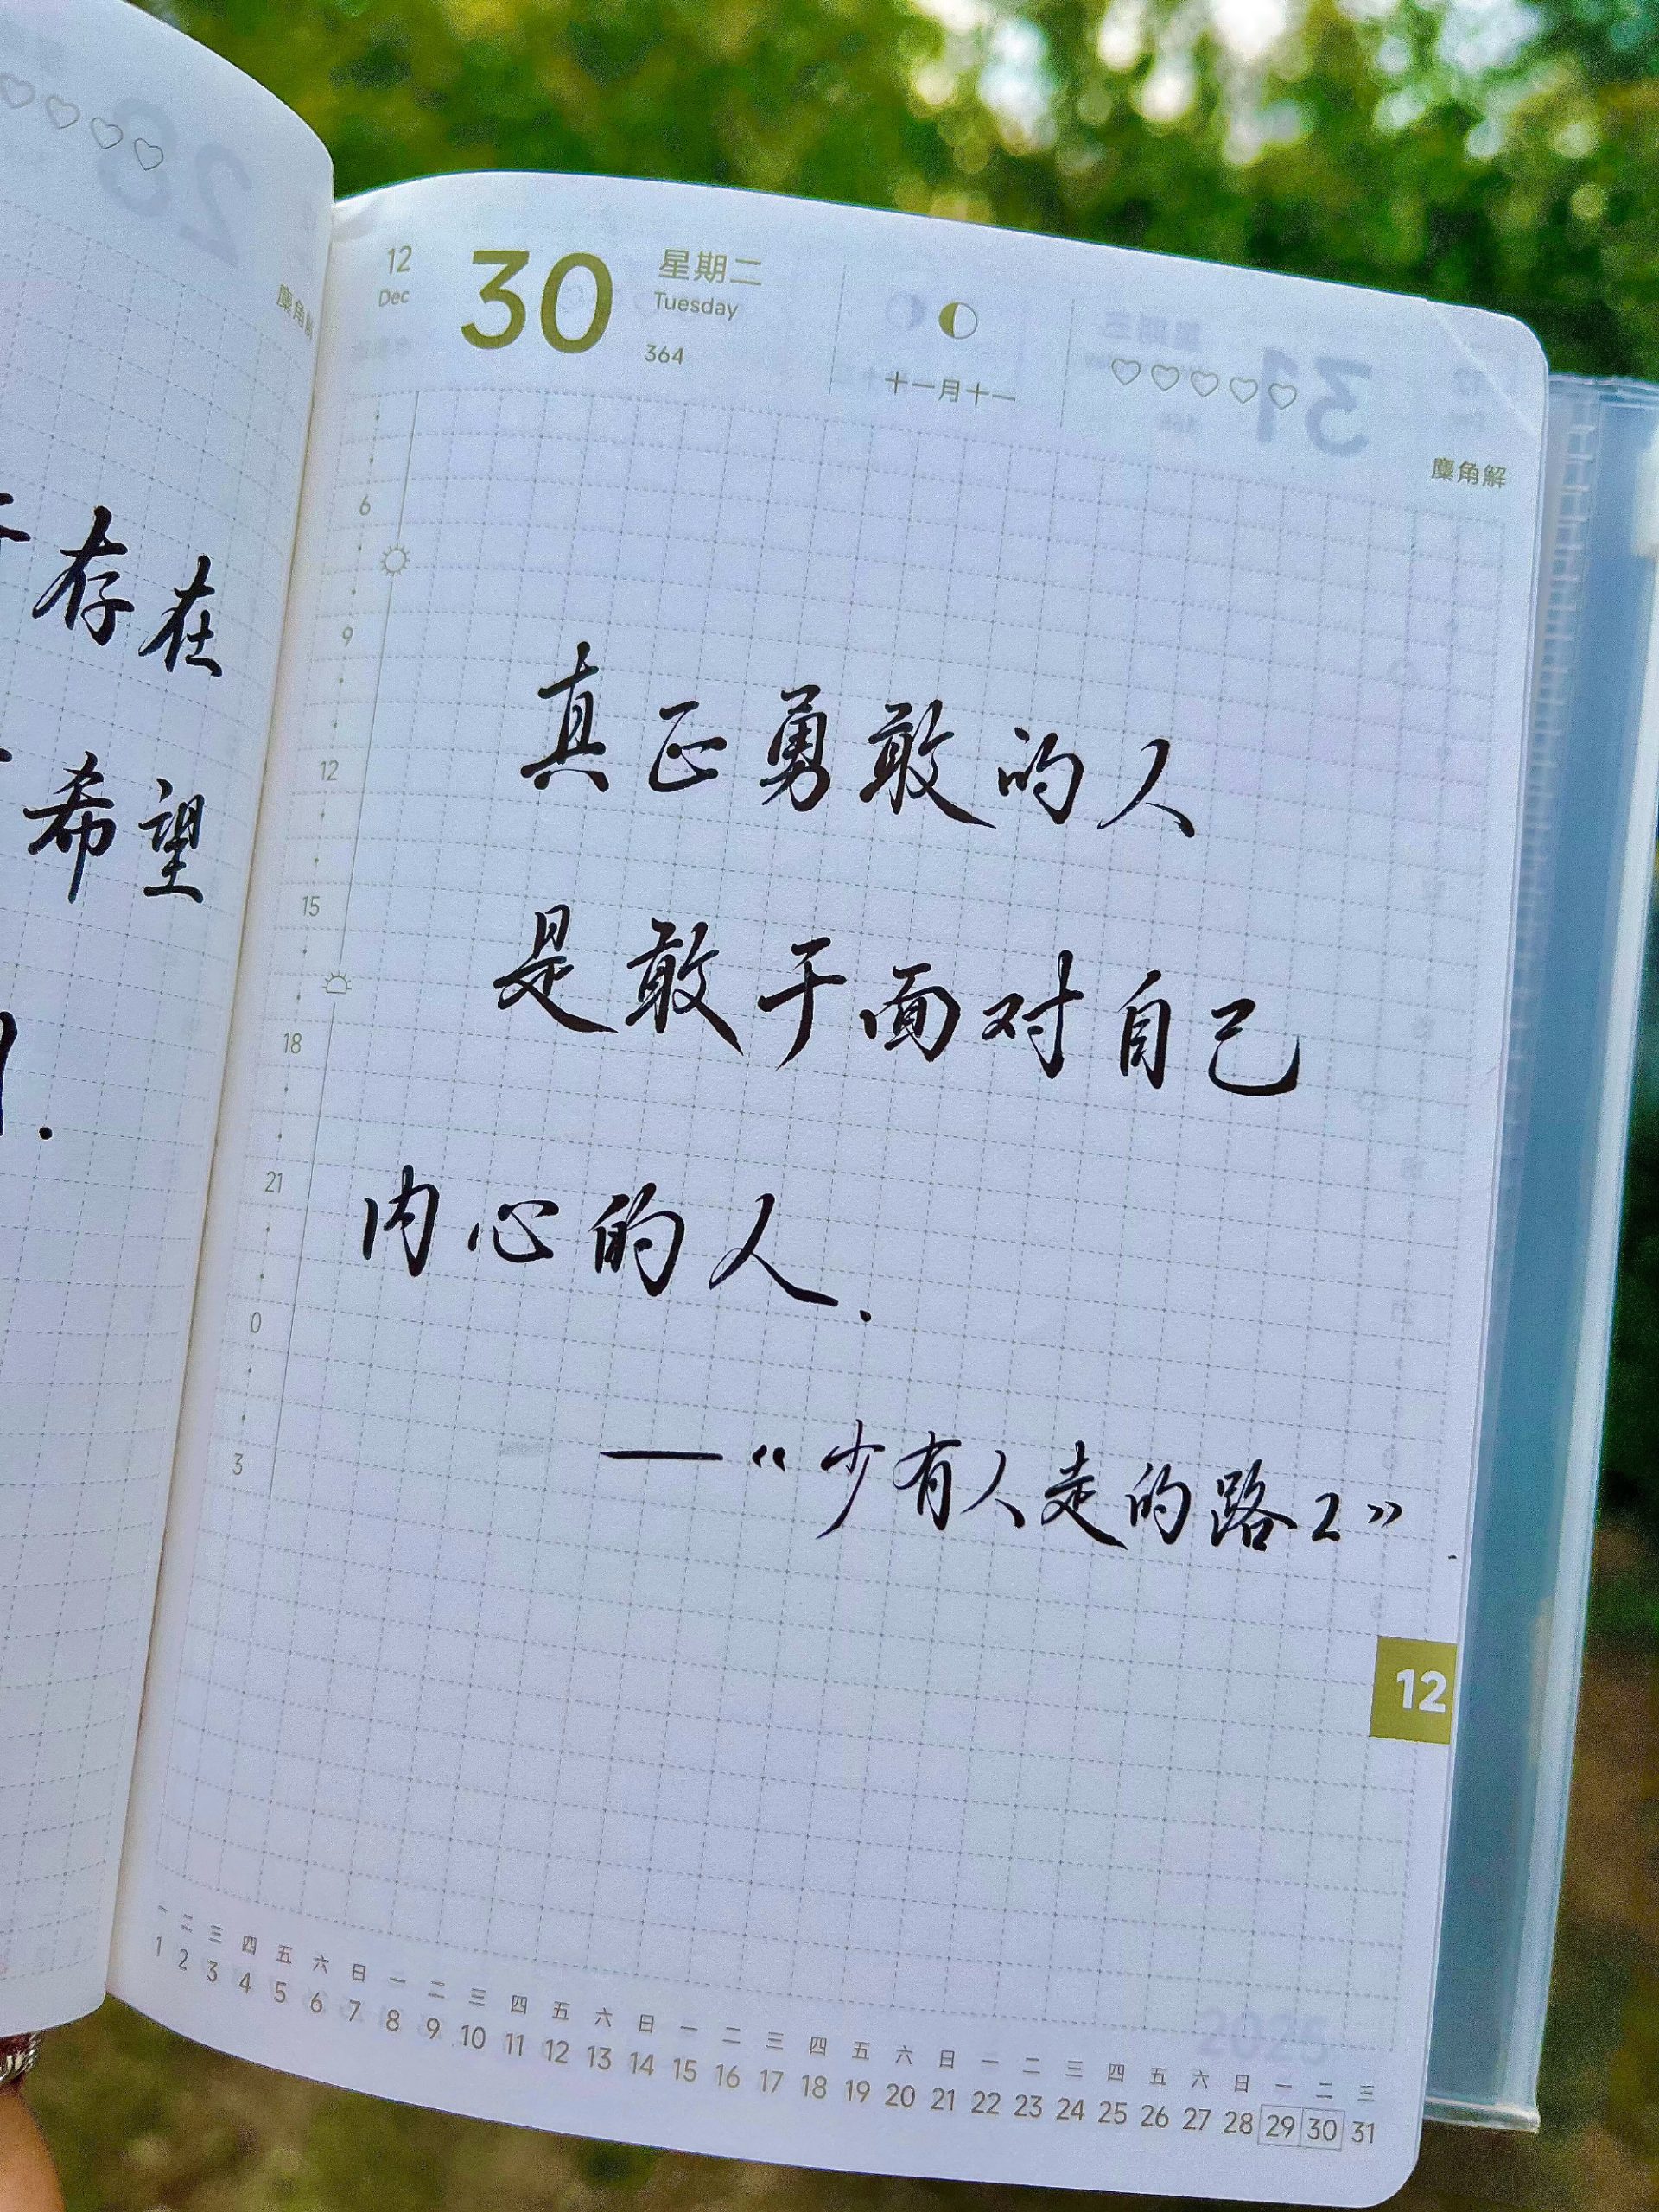 存在
希望
12
Dec
30
星期二
Tuesday
364
十一月十一
麋角解
6
9
12
15
18
21
0
3
真正勇敢的人
是敢于面对自己
内心的人.
—《少有人走的路2》
12
一 二 三 四 五 六 日 一 二 三 四 五 六 日 一 二 三 四 五 六 日 一 二 三 四 五 六 日 一 二 三
1 2 3 4 5 6 7 8 9 10 11 12 13 14 15 16 17 18 19 20 21 22 23 24 25 26 27 28 29 30 31